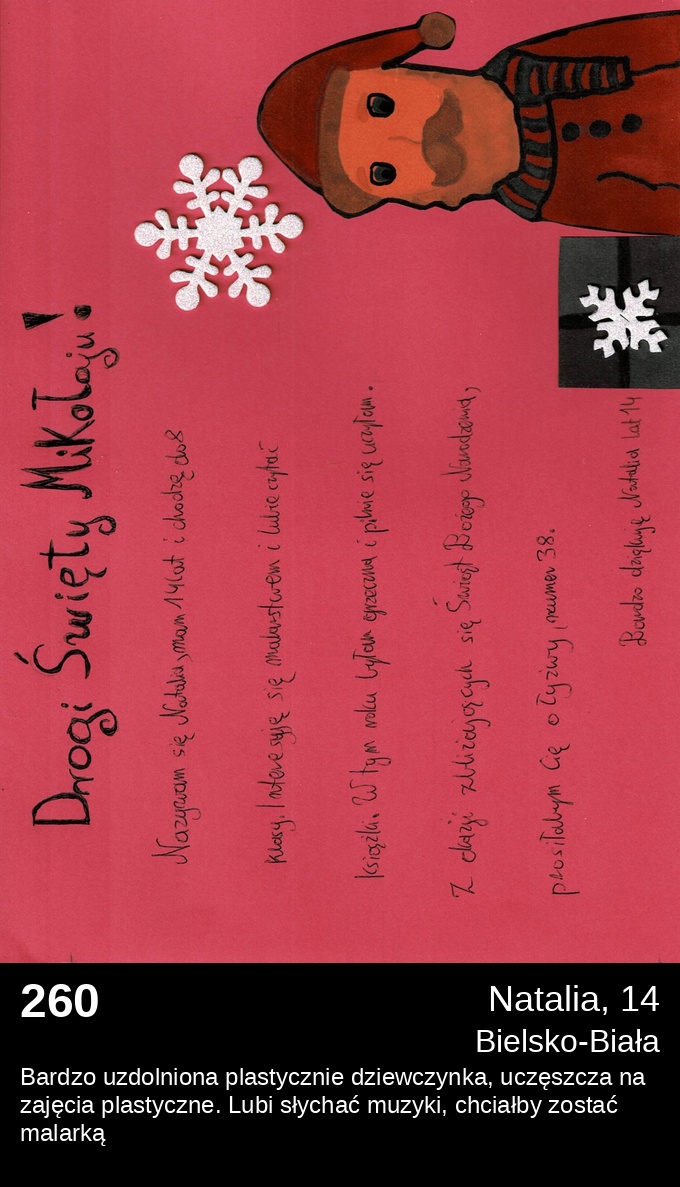 Drogi Święty Mikołaju!
Nazywam się Natalia, mam 14 lat i chodzę do 8
klasy. Interesuję się malarstwem i lubię czytać
książki. W tym roku byłam grzeczna i pilnie się uczyłam.
Z okazji zbliżających się Świąt Bożego Narodzenia,
prosiłabym Cię o łyżwy, numer 38.
Bardzo dziękuję Natalia lat 14
260
Natalia, 14
Bielsko-Biała
Bardzo uzdolniona plastycznie dziewczynka, uczęszcza na
zajęcia plastyczne. Lubi słychać muzyki, chciałby zostać
malarką